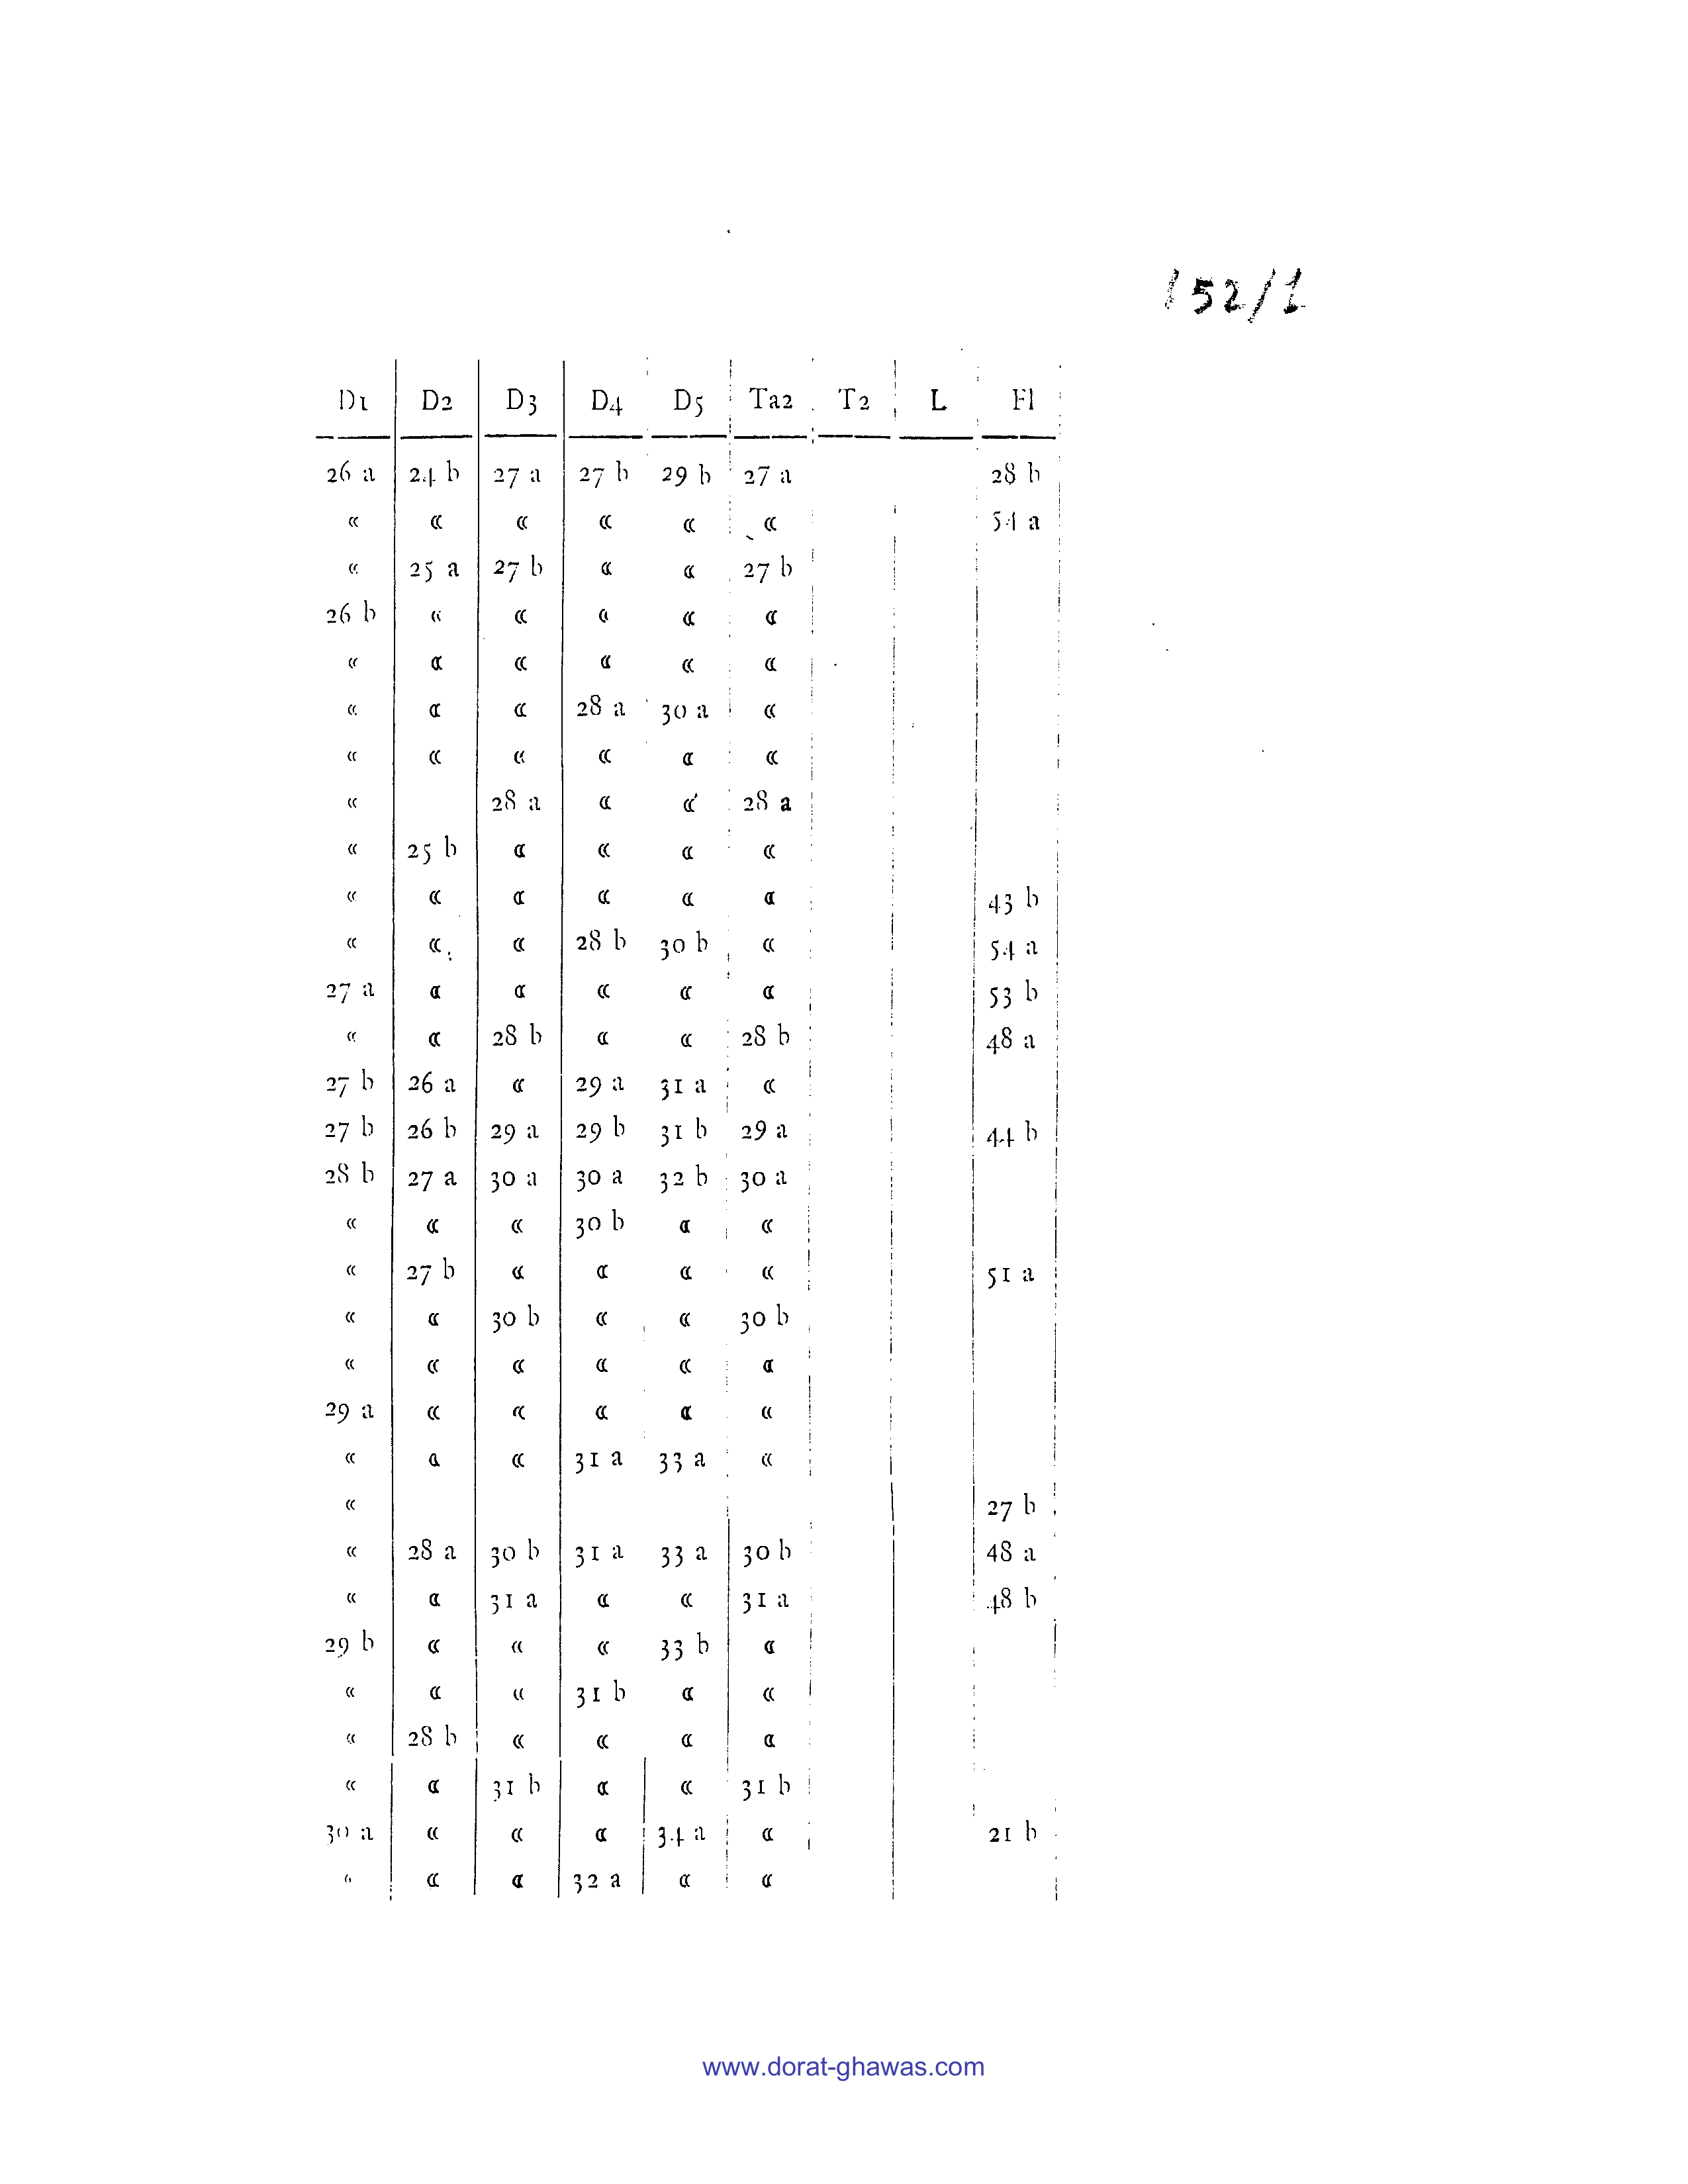 152/1
D1 D2 D3 D4 D5 Ta2 T2 L Fl
26 a 24 b 27 a 27 b 29 b 27 a 28 b
« « « « « « 54 a
« 25 a 27 b « « 27 b
26 b « « « « «
« « « « « «
« « « 28 a 30 a «
« « « « « «
« 28 a « « 28 a
« 25 b « « « «
« « « « « « 43 b
« « « 28 b 30 b « 54 a
27 a « « « « « 53 b
« « 28 b « « 28 b 48 a
27 b 26 a « 29 a 31 a «
27 b 26 b 29 a 29 b 31 b 29 a 44 b
28 b 27 a 30 a 30 a 32 b 30 a
« « « 30 b « «
« 27 b « « « « 51 a
« « 30 b « « 30 b
« « « « « «
29 a « « « « «
« « « 31 a 33 a «
« 27 b
« 28 a 30 b 31 a 33 a 30 b 48 a
« « 31 a « « 31 a 48 b
29 b « « « 33 b «
« « « 31 b « «
« 28 b « « « «
« « 31 b « « 31 b
30 a « « « 34 a « 21 b
« « « 32 a « «
www.dorat-ghawas.com